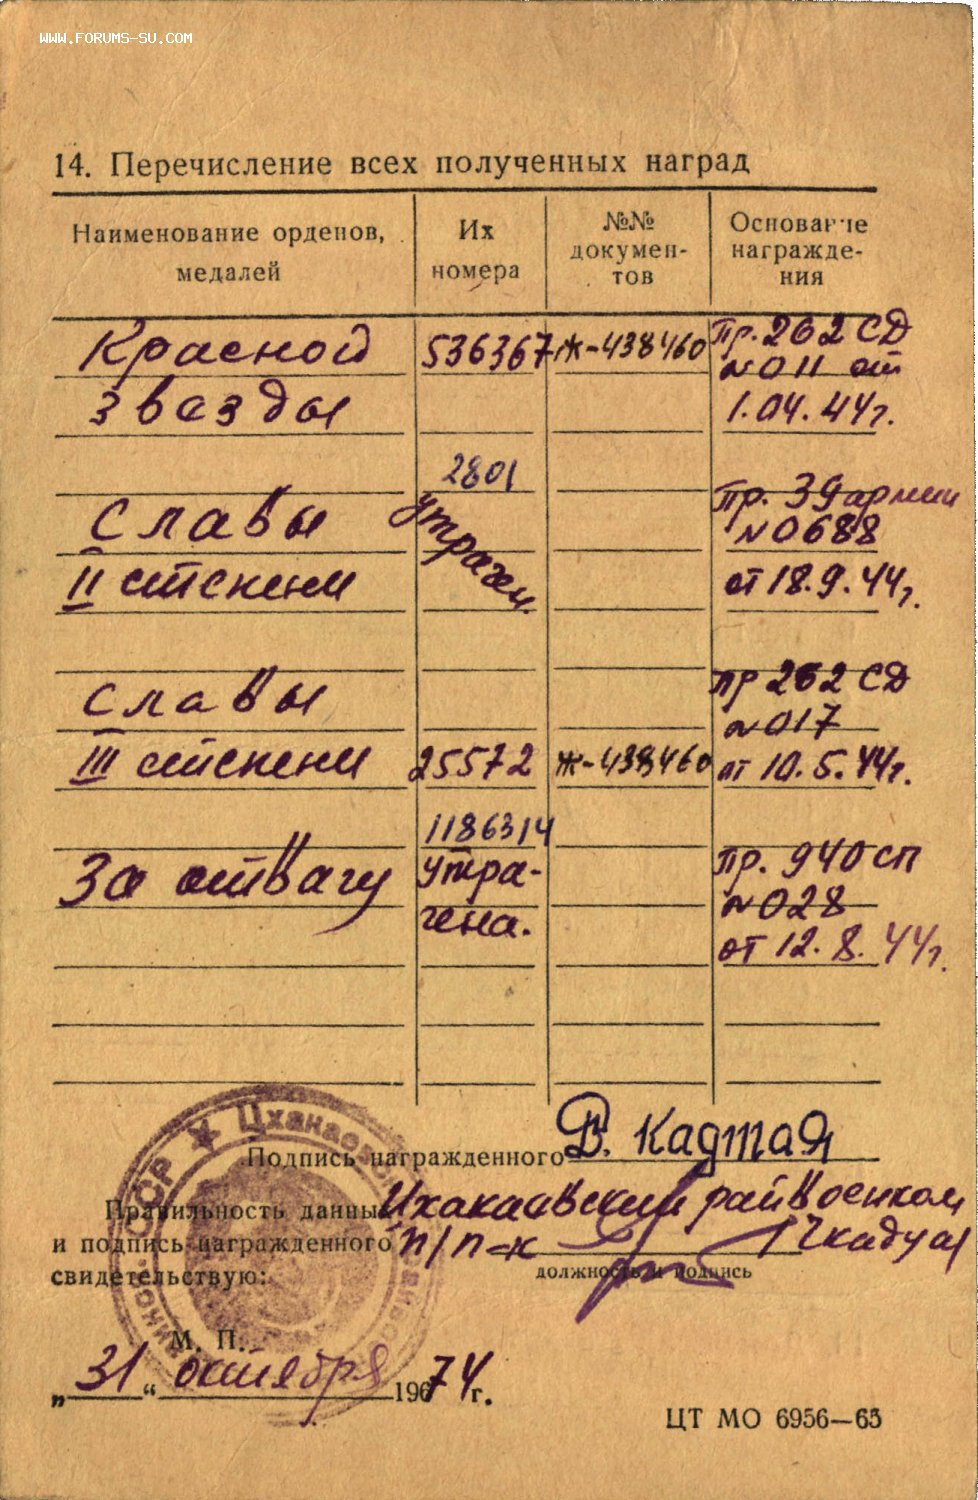 WWW.FORUMS-SU.COM
14. Перечисление всех полученных наград
Наименование орденов, медалей
Их номера
№№ документов
Основание награждения
Красной 536367 Ж-438460 Пр. 262 СД
№ 011 от
Звезды 1.04.44г.
2801
Славы утрачен. Пр. 39 армии
№ 0688
II степени от 18.9.44г.
Славы пр 262 СД
№ 017
III степени 25572 Ж-438460 от 10.5.44г.
1186314
За отвагу утра- Пр. 940 сп
чена. № 028
от 12.8.44г.
Подпись награжденного В. Кадтая
Правильность данных Цхакаевский райвоенком
и подпись награжденного п/п-к /Чкадуа/
свидетельствую: должность и подпись
М. П.
„31“ октября 1974 г.
ЦТ МО 6956—65